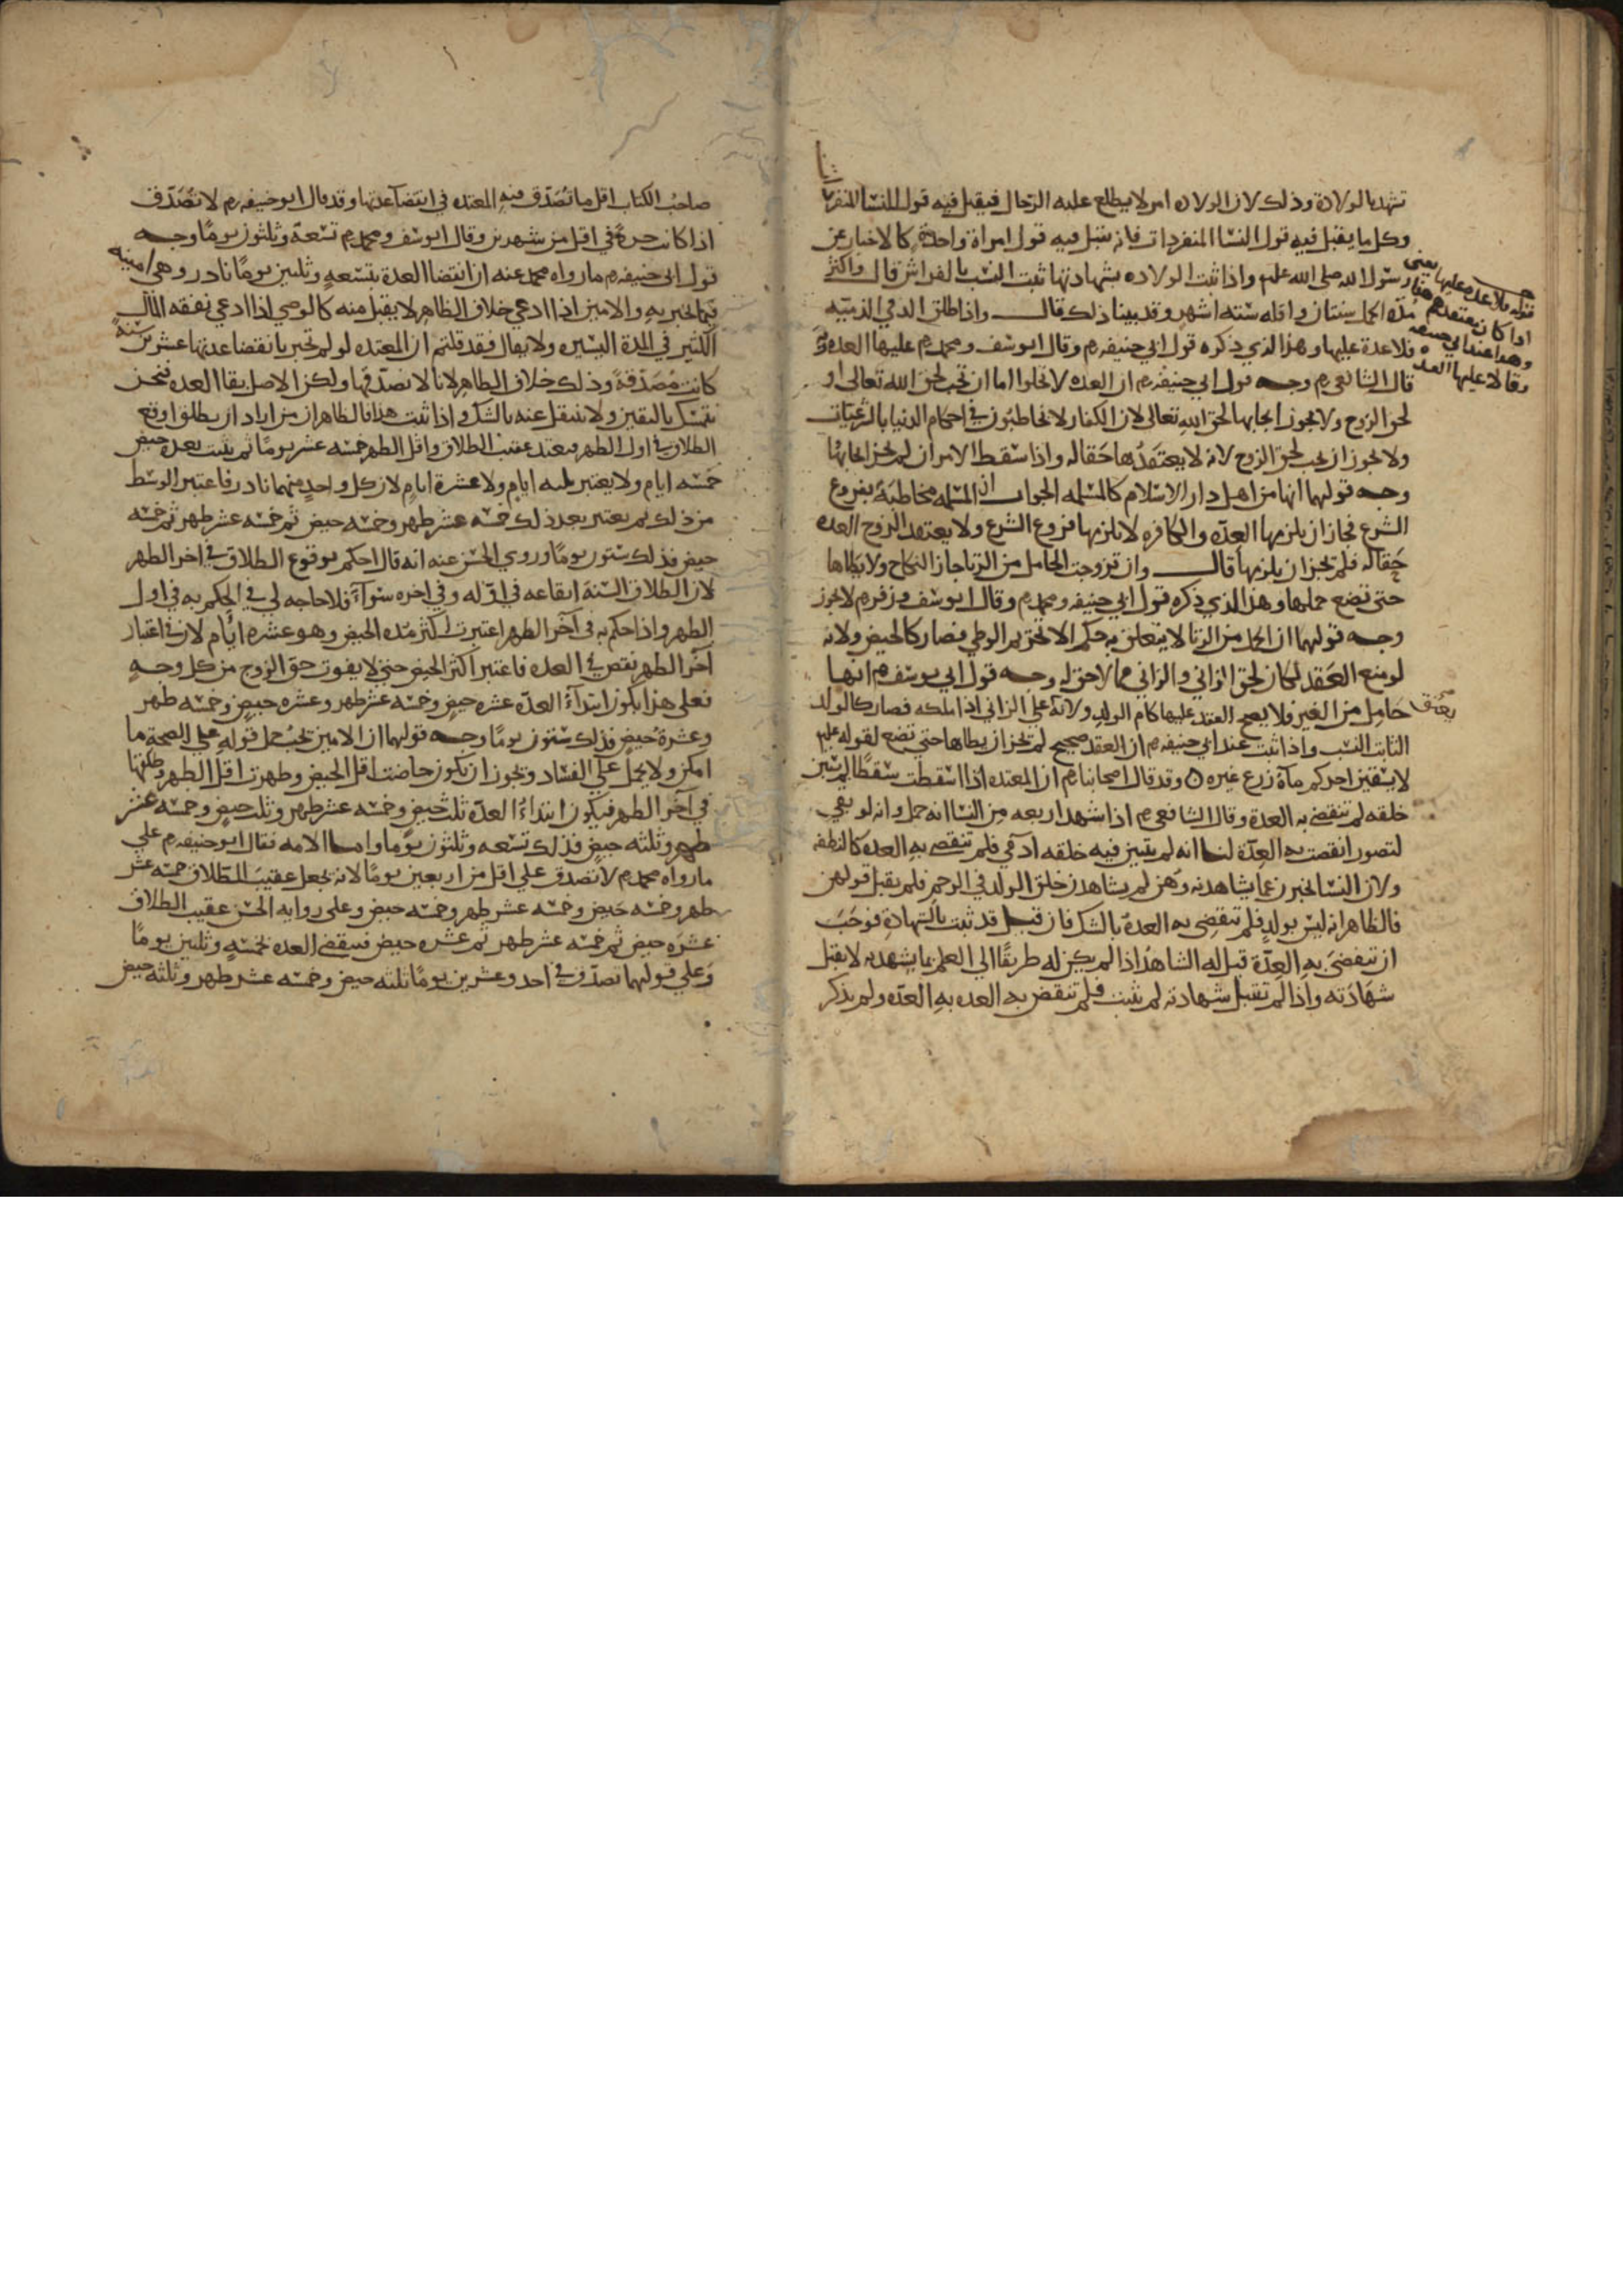 تشهد بالولادة وذلك لان الولاده امر لا يطلع عليه الرجال فيقبل فيه قول النسا المنفردات
وكل ما يقبل فيه قول النسا المنفردات فانه يقبل فيه قول امراة واحدة كالاخبار عن
رسول الله صلى الله عليه واذا ثبت الولاده بشهادتها ثبت النسب بالفراش قال واكثر
مدة الحمل سنتان واقله ستة اشهر وقد بينا ذلك قال واذا طلق الذمي الذميه
فلا عدة عليها وهذا الذي ذكره قول ابي حنيفه رم وقال ابو يوسف ومحمد رم عليها العده وبه
قال الشافعي رم وجه قول ابي حنيفه رم ان العده لا تخلوا اما ان تجب لحق الله تعالى او
لحق الزوج ولا يجوز ايجابها لحق الله تعالى لان الكفار لا يخاطبون في احكام الدنيا بالشرعيات
ولا يجوز ان يجب لحق الزوج لانه لا يعتقدها حقا له واذا سقط الامران لم يجز ايجابها
وجه قولهما انها من اهل دار الاسلام كالمسلمه الجواب ان المسلمه مخاطبة بفروع
الشرع فجاز ان يلزمها العده والكافره لا تلزمها فروع الشرع ولا يعتقد الزوج العده
حقا له فلم يجز ان يلزمها قال وان تزوجت الحامل من الزنا جاز النكاح ولا يطاها
حتى تضع حملها وهذا الذي ذكره قول ابي حنيفه ومحمد رم وقال ابو يوسف وزفر رم لا يجوز
وجه قولهما ان الحمل من الزنا لا يتعلق به حكم الا تحريم الوطي فصار كالحيض ولانه
لو منع العقد لكان لحق الزاني والزاني مما لا حق له وجه قول ابي يوسف رم انها
حامل من الغير فلا يصح العقد عليها كام الولد ولانه على الزاني اذا ملكه فصار كالولد
الثابت النسب واذا ثبت عند ابي حنيفه رم ان العقد صحيح لم يجز ان يطاها حتى تضع لقوله عليه
لا يسقين احدكم ماه زرع غيره وقد قال اصحابنا رم ان المعتده اذا اسقطت سقطا لم يتبين
خلقه لم تنقضي به العدة وقال الشافعي رم اذا شهد اربعه من النسا انه حمل وانه لو بقي
لتصور انقضت به العدة لنا انه لم يتبين فيه خلقه ادمي فلم تنقضي به العده كالنطفه
ولان النسا يخبرن عما يشاهدنه وهن لم يشاهدن خلق الولد في الرحم فلم يقبل قولهن
فالظاهر انه ليس بولد فلم تنقضي به العدة بالشك فان قيل قد ثبت بالشهادة فوجب
ان تنقضي به العدة قيل له الشاهد اذا لم يكن له طريقا الى العلم بما يشهد به لا يقبل
شهادته واذا لم تقبل شهادته لم تثبت فلم تنقض به العده به العده ولم يذكر
قوله فلا عده عليها يعني
اذا كان معتقدهم هذا
وهذا عند ابي حنيفه
وقالا عليها العده
يعتق
صاحب الكتاب اقل ما تصدق فيه المعتده في انقضآ عدتها وقد قال ابو حنيفه رم لا تصدق
اذا كانت حرة في اقل من شهرين وقال ابو يوسف ومحمد رم تسعة وثلثون يوما وجه
قول ابي حنيفه رم ما رواه محمد عنه ان انقضا العدة بتسعة وثلثين يوما نادر وهي امينه
فيما تخبر به والامين اذا ادعي خلاف الظاهر لا يقبل منه كالوصي اذا ادعي نفقه المال
الكثير في المدة اليسيره ولا يقال فقد قلتم ان المعتده لو لم تخبر بانقضا عدتها عشرين سنة
كانت مصدقة وذلك خلاف الظاهر لانا لا نصدقها ولكن الاصل بقا العده فنحن
نتمسك باليقين ولا ننتقل عنه بالشك واذا ثبت هذا فالظاهر ان من اراد ان يطلق اوقع
الطلاق في اول الطهر فيعتد عقيب الطلاق واقل الطهر خمسه عشر يوما ثم يثبت بعده حيض
خمسه ايام ولا يعتبر ثلثه ايام ولا عشرة ايام لان كل واحد منهما نادر فاعتبر الوسط
من ذلك ثم يعتبر بعد ذلك خمسه عشر طهر وخمسه حيض ثم خمسه عشر طهر ثم خمسه
حيض فذلك ستون يوما وروي الحسن عنه انه قال احكم بوقوع الطلاق في اخر الطهر
لان الطلاق السنة ايقاعه في اوله وفي اخره سوآء فلا حاجه لي في الحكم به في اول
الطهر واذا حكم به في آخر الطهر اعتبرت اكثر مده الحيض وهو عشره ايام لان في اعتبار
آخر الطهر نقص في العده فاعتبر اكثر الحيض حتى لا يفوت حق الزوج من كل وجه
فعلى هذا يكون ابتدآء العدة عشره حيض وخمسه عشر طهر وعشره حيض وخمسه طهر
وعشرة حيض فذلك ستون يوما وجه قولهما ان الامين يجب حمل قوله على الصحة ما
امكن ولا يحمل علي الفساد ويجوز ان يكون حاضت اقل الحيض وطهرت اقل الطهر وطلقها
في آخر الطهر فيكون ابتداء العدة ثلث حيض وخمسه عشر طهر وثلث حيض وخمسه عشر
طهر وثلثه حيض فذلك تسعه وثلثون يوما واما الامه فقال ابو حنيفه رم علي
ما رواه محمد رم لا تصدق علي اقل من اربعين يوما لانه يجعل عقيب الطلاق خمسه عشر
طهر وخمسه حيض وخمسه عشر طهر وخمسه حيض وعلى روايه الحسن عقيب الطلاق
عشره حيض ثم خمسه عشر طهر ثم عشره حيض فينقضي العده بخمسة وثلثين يوما
وعلي قولهما تصدق في احد وعشرين يوما ثلثه حيض وخمسه عشر طهر وثلثه حيض